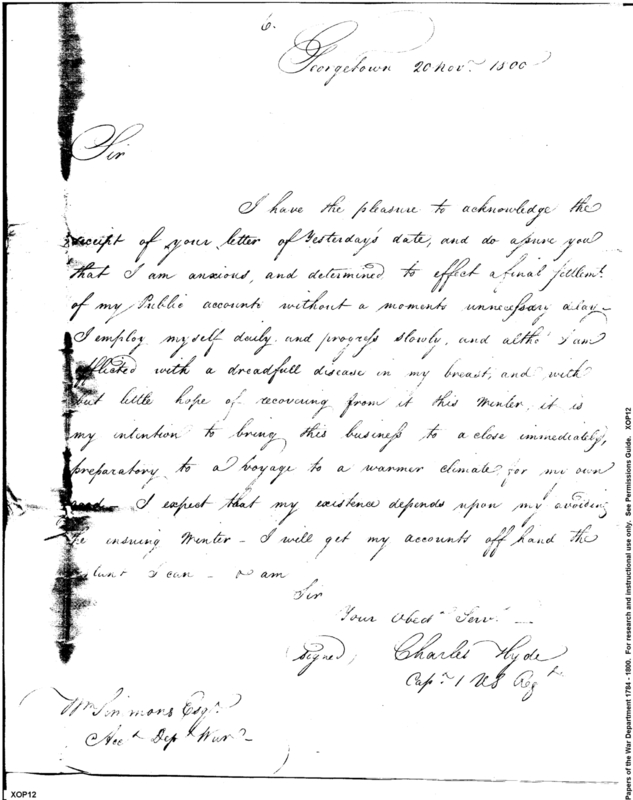 6.
Georgetown 20 Novr. 1800
Sir
I have the pleasure to acknowledge the
receipt of your letter of Yesterday's date, and do assure you
that I am anxious, and determined to effect a final settlemt.
of my Public accounts without a moments unnecessary delay –
I employ myself daily and progress slowly, and altho' I am
afflicted with a dreadfull disease in my breast, and with
but little hope of recovering from it this Winter, it is
my intention to bring this business to a close immediately,
preparatory to a Voyage to a warmer climate for my own
I expect that my existence depends upon my avoiding
the ensuing Winter – I will get my accounts off hand the
I can – & am
Sir
Your Obedt. Servt. –
(Signed) Charles Hyde
Capn. 1 US Regt.
Wm Simmons Esqr.
Acct. Dept. War
XOP12
Papers of the War Department 1784 - 1800. For research and instructional use only. See Permissions Guide. XOP12